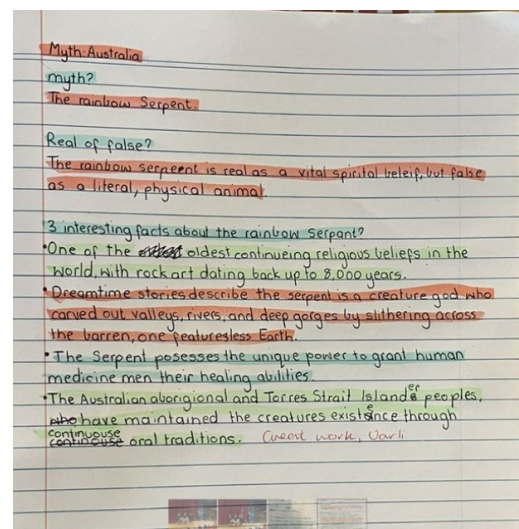 Myth: Australia
myth?
The rainbow Serpent.
Real of false?
The rainbow serpeent is real as a vital spirital beleif, but false
as a literal, physical animal
3 interesting facts about the rainbow Serpant?
•One of the oldest continueing religious beliefs in the
world, with rock art dating back up to 8,000 years.
•Dreamtime stories describe the serpent is a creature god who
carved out valleys, rivers, and deep gorges by slithering across
the barren, one featuresless Earth.
•The Serpent posesses the unique power to grant human
medicine men their healing abilities.
•The Australian aborigional and Torres Strait Islander peoples,
who have maintained the creatures existence through
continuouse oral traditions. Great work,